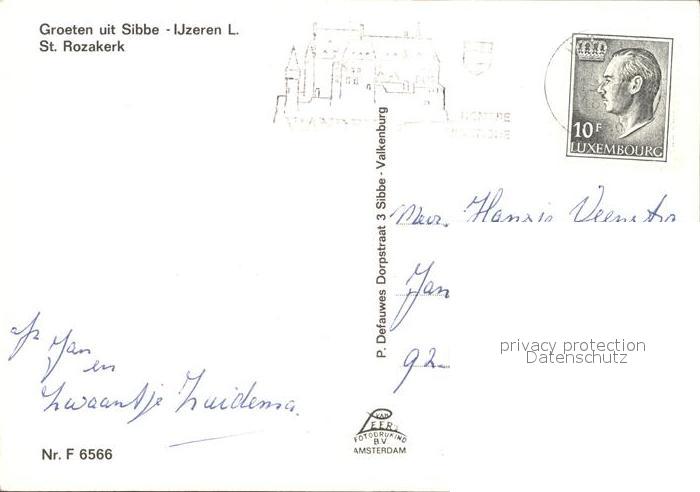 Groeten uit Sibbe - IJzeren L.
St. Rozakerk
10 F
LUXEMBOURG
P. Defauwes Dorpstraat 3 Sibbe - Valkenburg
Mevr. Hannie Veenstra
Jan
92
privacy protection
Datenschutz
Jan
en
Zwaantje Zuidema.
VAN
LEER'S
FOTODRUKIND
B.V.
AMSTERDAM
Nr. F 6566